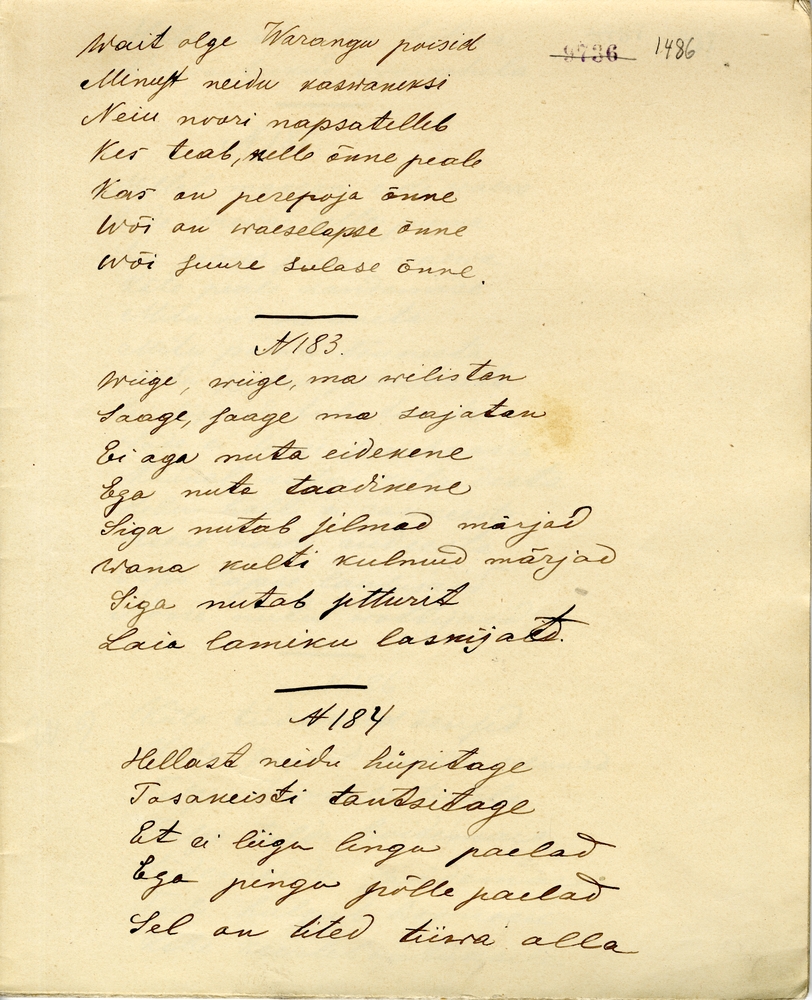 9736 1486
Wait olge Warangu poisid
Minust neidu kaswaneksi
Neiu noori napsatelleb
Kes teab, kelle õnne peale
Kas on perepoja õnne
Wõi on waeselapse õnne
Wõi suure sulase õnne.
N 183.
Wiige, wiige, ma wilistan
Saage, saage ma sajatan
Ei aga nuta eidekene
Ega nuta taadikene
Siga nutab silmad märjad
Wana kulti kulmud märjad
Siga nutab sitturit
Laia lamiku laskijaid.
N 184
Hellast neidu hüpitage
Tasakeisti tantsitage
Et ei liigu lingu paelad
Ega pingu põlle paelad
Sel on tited tiiwa alla